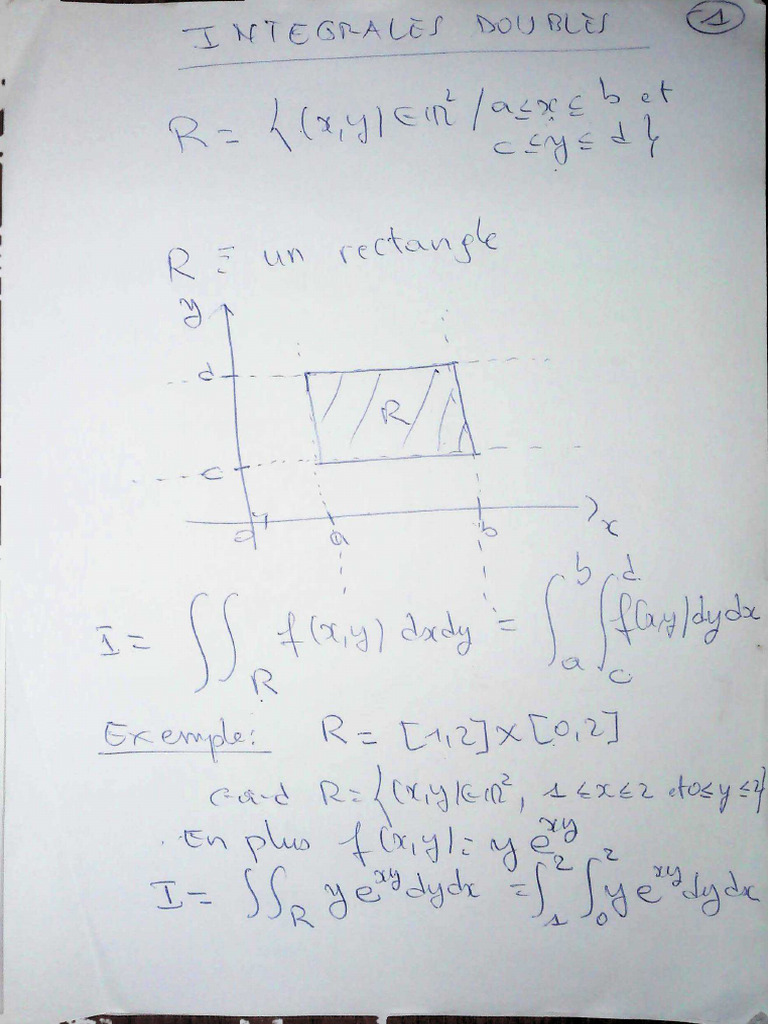 1
INTEGRALES DOUBLES
R = { (x,y) ∈ ℝ² / a ≤ x ≤ b et
c ≤ y ≤ d }
R ≡ un rectangle
y
d
R
c
o
a
b
x
I = ∬_R f(x,y) dxdy = ∫_a^b ∫_c^d f(x,y) dydx
Exemple: R = [1,2] × [0,2]
c-a-d R = { (x,y) ∈ ℝ², 1 ≤ x ≤ 2 et 0 ≤ y ≤ 2 }
. En plus f(x,y) = y e^{xy}
I = ∬_R y e^{xy} dydx = ∫_1^2 ∫_0^2 y e^{xy} dydx